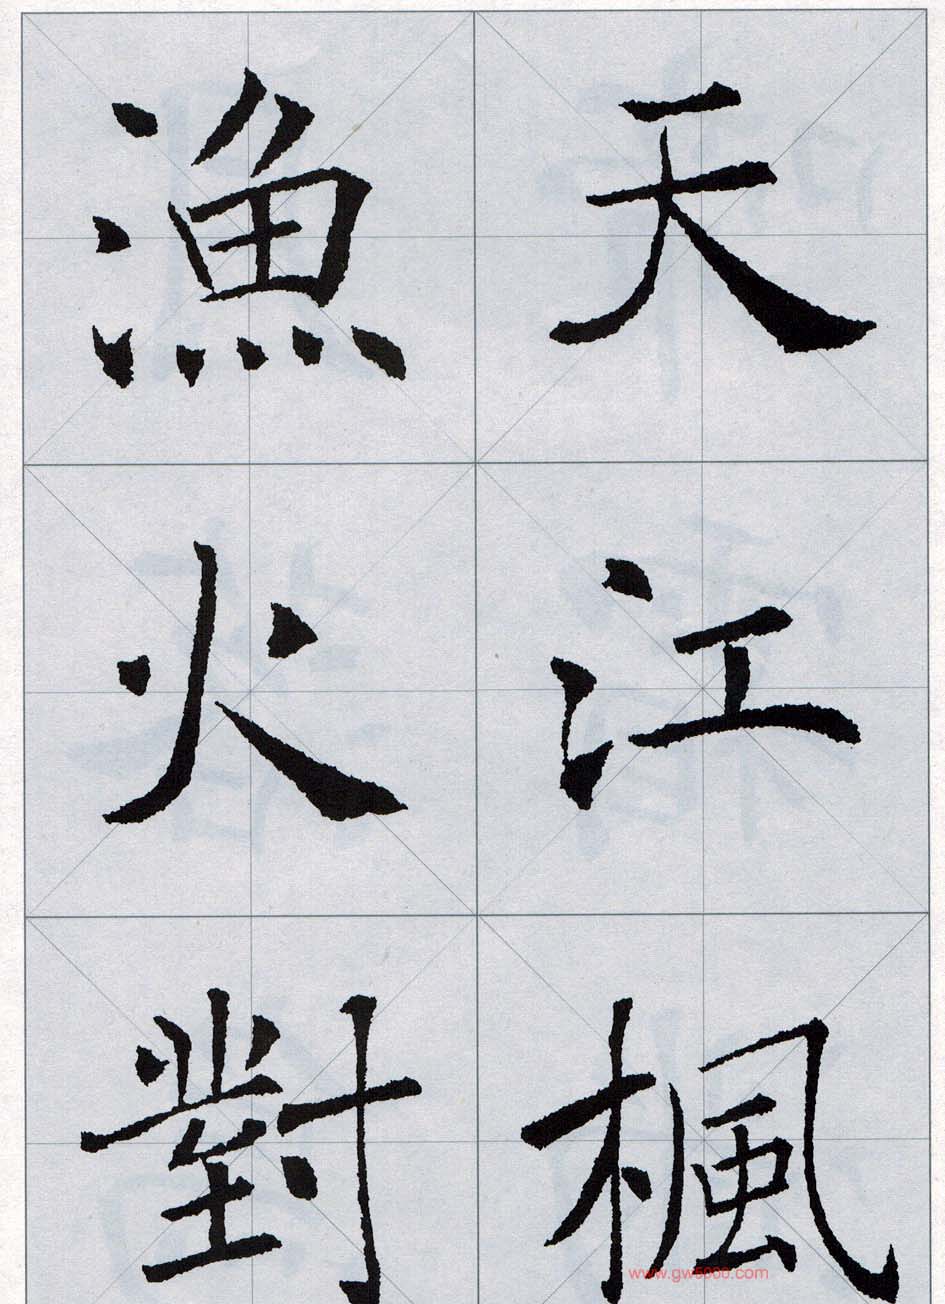 天江楓
漁火對
www.gw5000.com